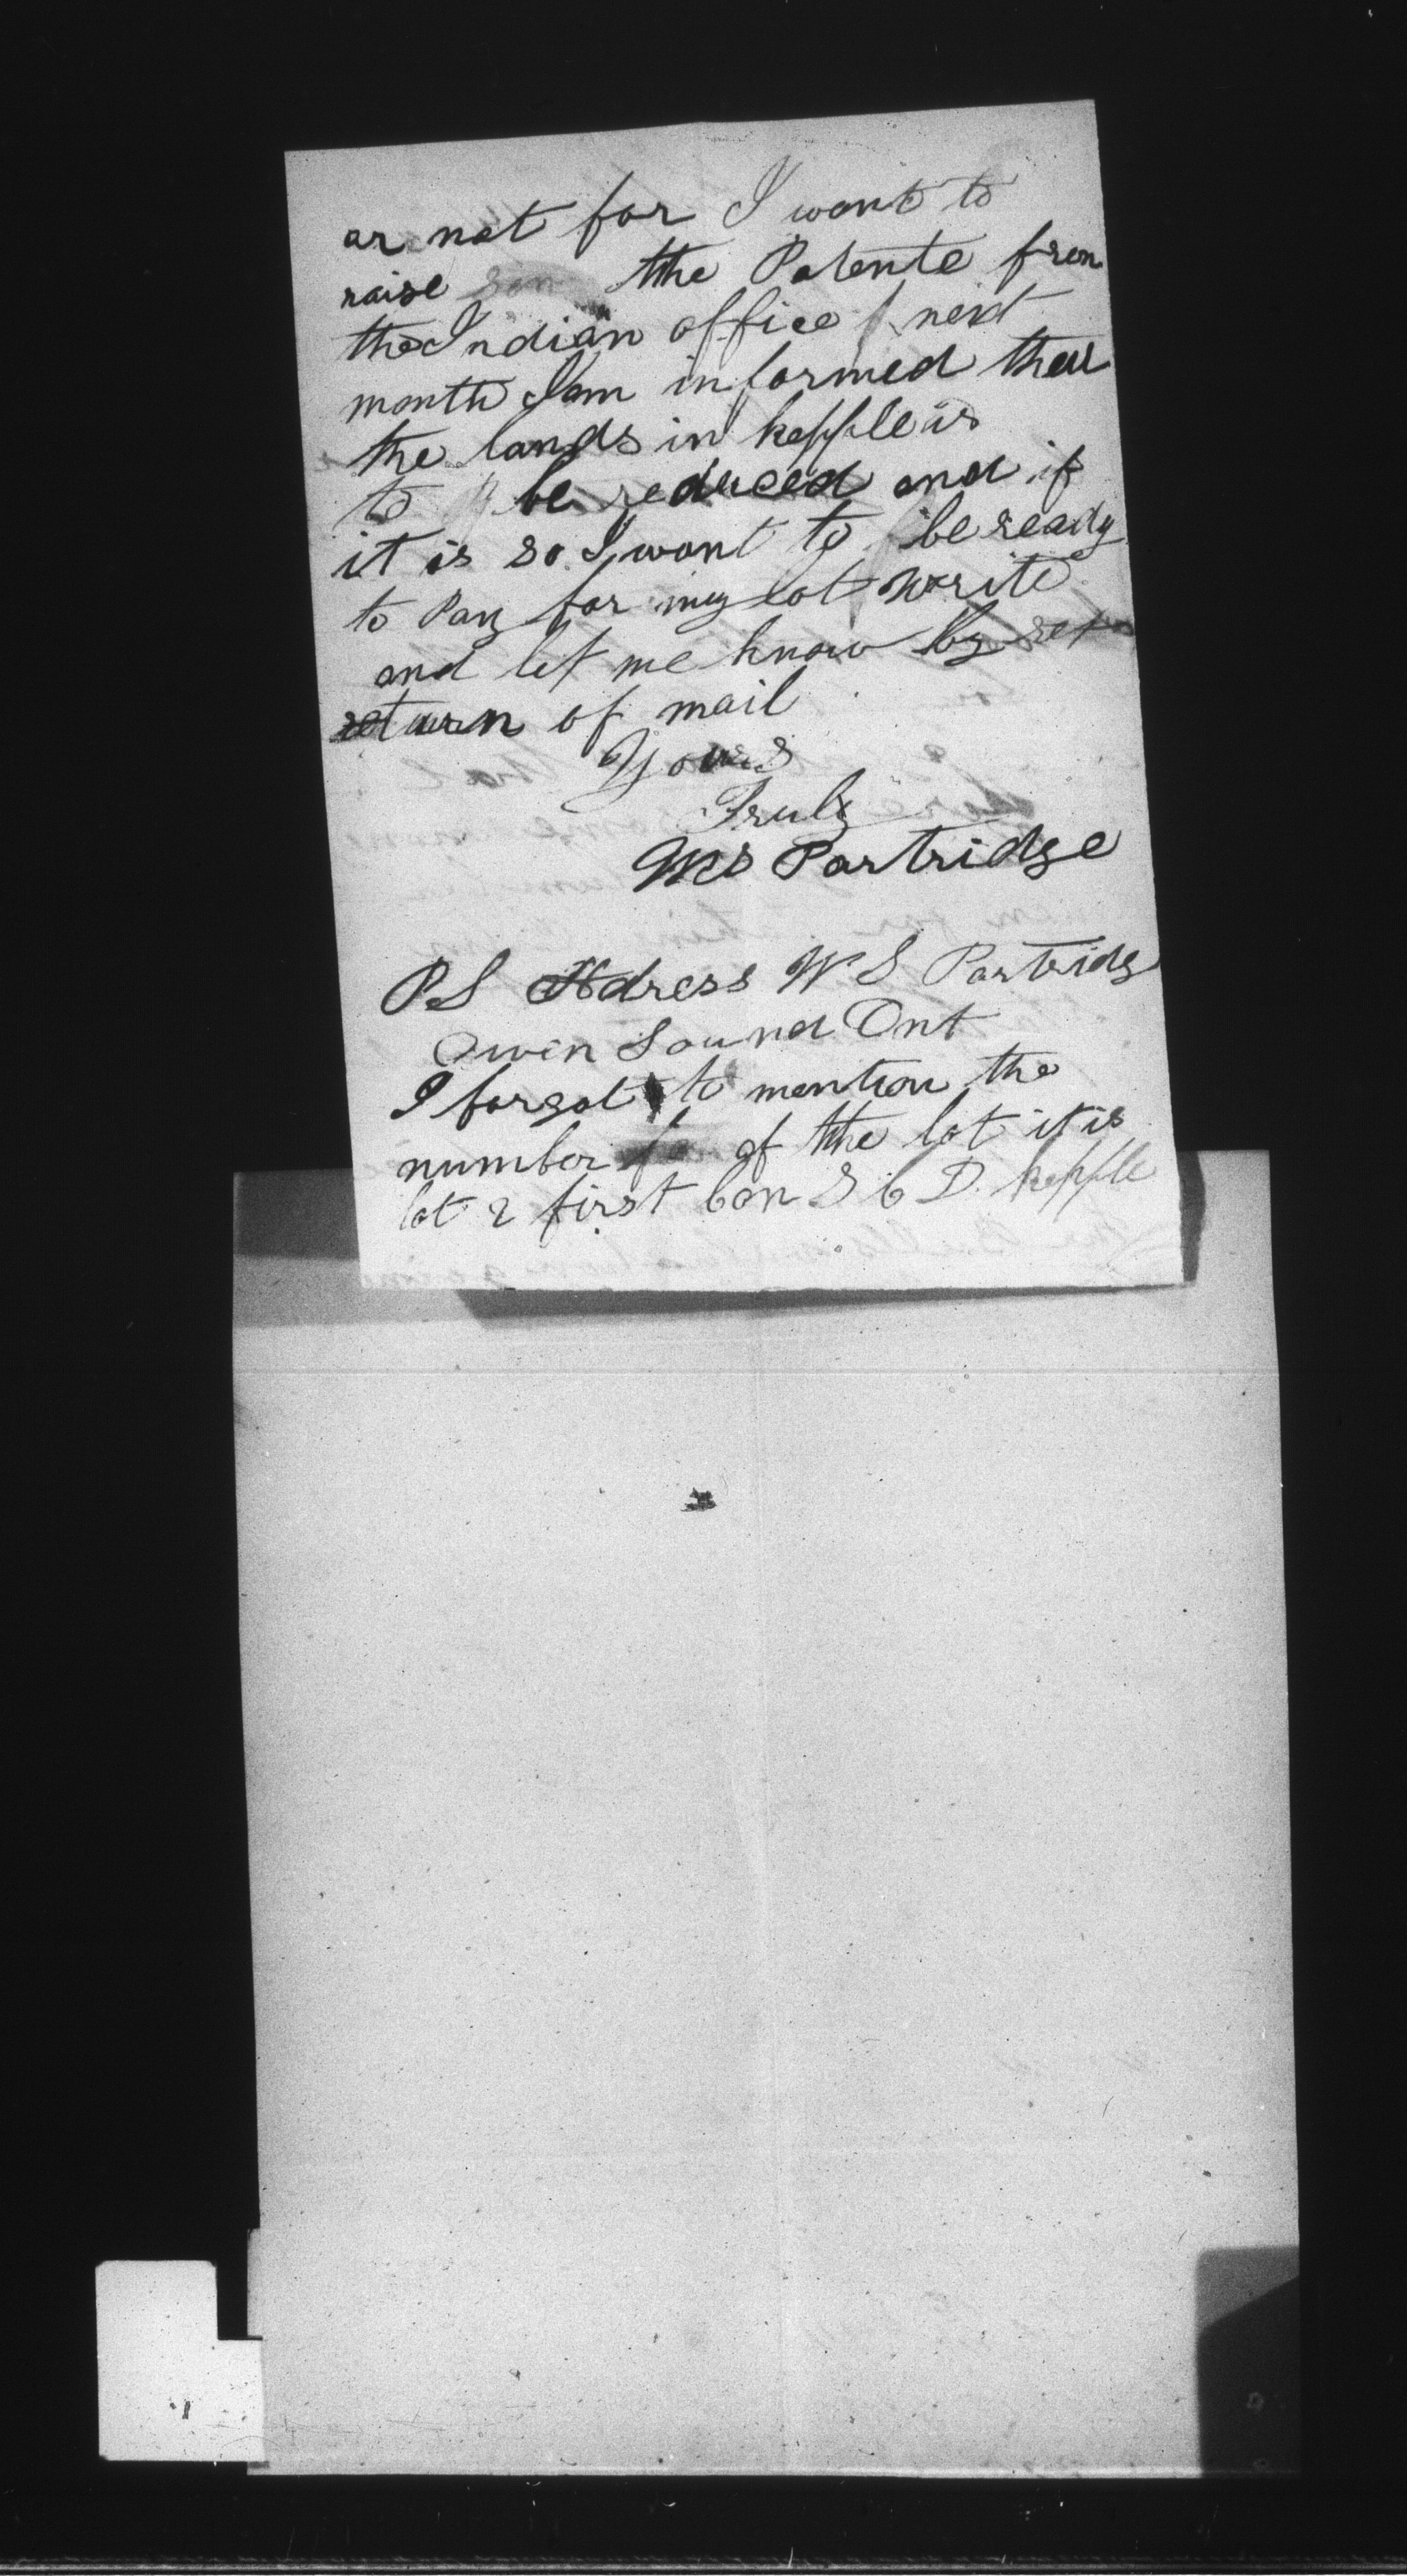 or not for I want to
raise the Patente from
the Indian office next
month I am informed that
the lands in kepple is
to be reduced and if
it is so I want to be ready
to Pay for my lot write
and let me know by ret
return of mail
Yours
Truly
WS Partridge
PS Adress W S Partridg
Owen Sound Ont
I forgot to mention the
number of the lot it is
lot 2 first Con S C D. kepple